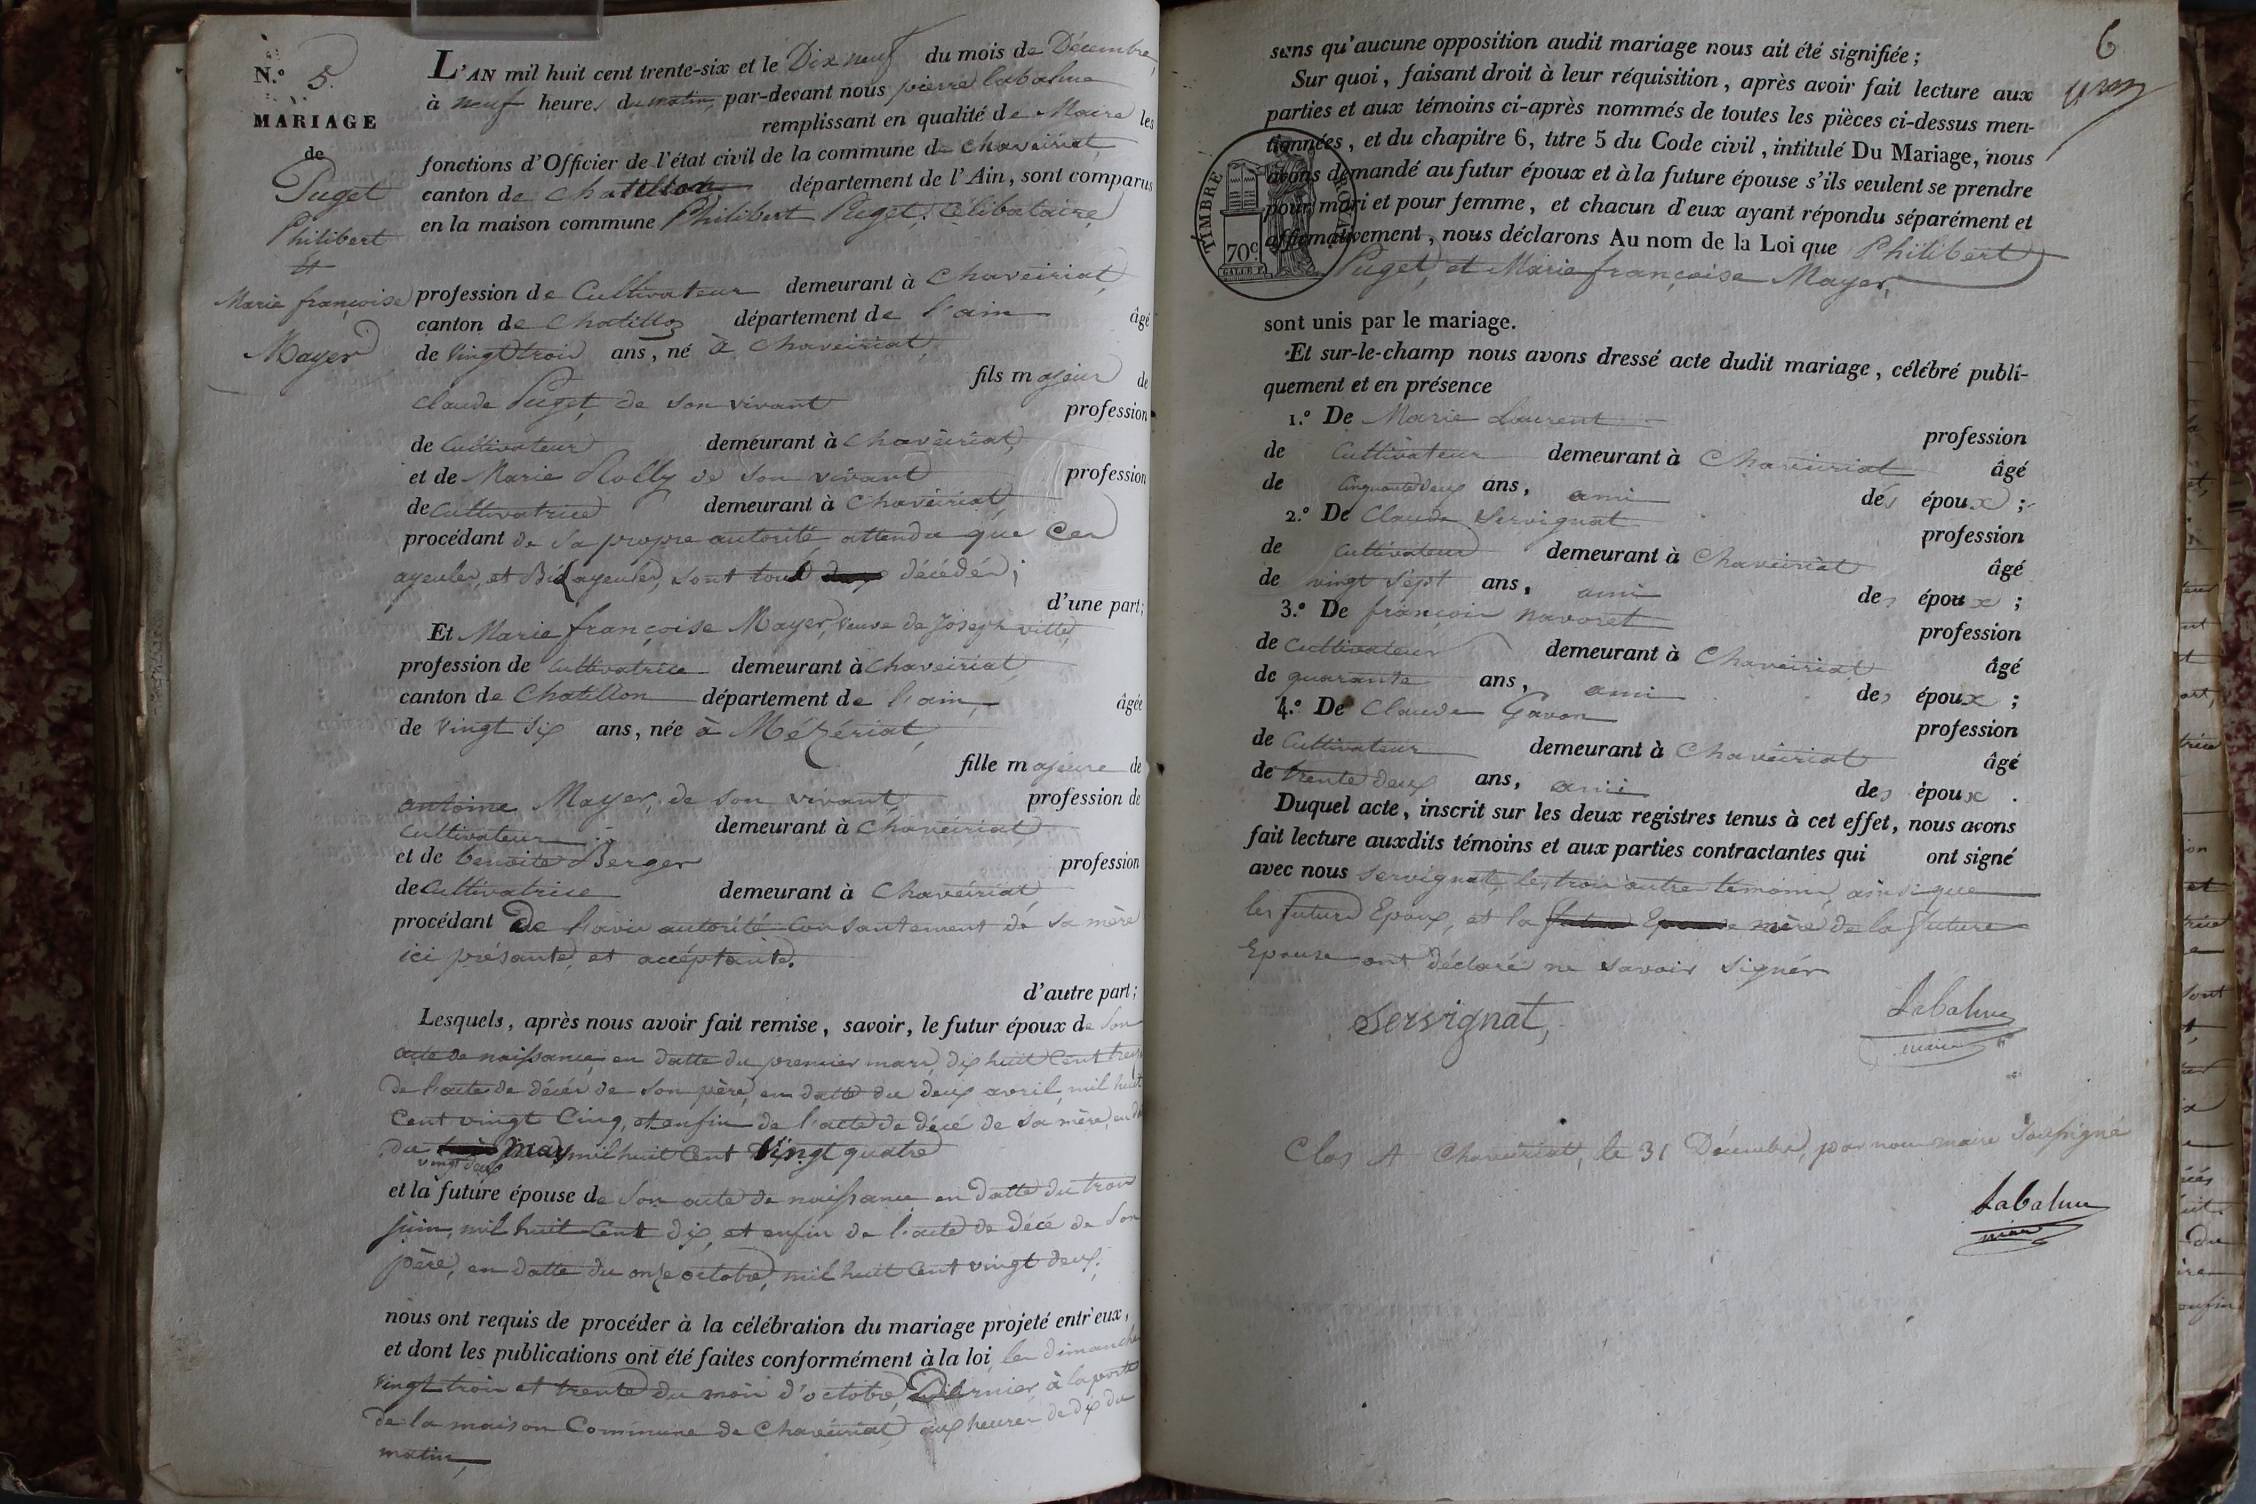 N.º 5.
MARIAGE
de
Puget
Philibert
et
Marie françoise
Mayer
L'AN mil huit cent trente-six et le Dix neuf du mois de Décembre,
à neuf heures du matin, par-devant nous pierre labalme
remplissant en qualité de Maire les
fonctions d'Officier de l'état civil de la commune de Chaveiriat,
canton de Chatillon département de l'Ain, sont comparus
en la maison commune Philibert Puget, Célibataire,
profession de Cultivateur demeurant à Chaveiriat,
canton de Chatillon département de l'ain âgé
de Vingt trois ans, né à Chaveiriat,
fils majeur de
Claude Puget, de son vivant profession
de Cultivateur demeurant à Chaveiriat,
et de Marie Rolly de son vivant profession
de Cultivatrice demeurant à Chaveiriat,
procédant de sa propre autorité attendu que Ces
ayeules, et Bisayeules, sont tous décédés;
d'une part;
Et Marie françoise Mayer, veuve de Joseph ville,
profession de Cultivatrice demeurant à Chaveiriat,
canton de Chatillon département de l'ain, âgée
de vingt six ans, née à Mézériat,
fille majeure de
antoine Mayer, de son vivant, profession de
Cultivateur demeurant à Chaveiriat,
et de benoite Berger profession
de Cultivatrice demeurant à Chaveiriat,
procédant De l'avis autorité Consantement de sa mère
ici présante, et accéptante.
d'autre part;
Lesquels, après nous avoir fait remise, savoir, le futur époux de son
acte de naissance, en datte du premier mars, dix huit Cent treize
de l'acte de décès de son père, en datte du deux avril, mil huit
Cent vingt Cinq, et enfin de l'acte de décé de sa mère, en
du may mil huit Cent Vingt quatre
vingt deux
et la future épouse de son acte de naissance en datte du trois
juin, mil huit Cent dix, et enfin de l'acte de décé de son
père, en datte du onze octobre, mil huit Cent vingt deux.
nous ont requis de procéder à la célébration du mariage projeté entr'eux,
et dont les publications ont été faites conformément à la loi, les dimanche
Vingt trois et trente du mois d'octobre, Dernier, à la porte
de la maison Commune de Chaveiriat, aux heures de dix du
matin,
6
sans qu'aucune opposition audit mariage nous ait été signifiée;
Sur quoi, faisant droit à leur réquisition, après avoir fait lecture aux
parties et aux témoins ci-après nommés de toutes les pièces ci-dessus men-
tionnées, et du chapitre 6, titre 5 du Code civil, intitulé Du Mariage, nous
avons demandé au futur époux et à la future épouse s'ils veulent se prendre
pour mari et pour femme, et chacun d'eux ayant répondu séparément et
affirmativement, nous déclarons Au nom de la Loi que Philibert
Puget, et Marie françoise Mayer,
TIMBRE ROYAL
70c.
sont unis par le mariage.
Et sur-le-champ nous avons dressé acte dudit mariage, célébré publi-
quement et en présence
1.º De Marie Laurent profession
de Cultivateur demeurant à Chaveiriat âgé
de Cinquante deux ans, ami des époux;
2.º De Claude Servignat profession
de Cultivateur demeurant à Chaveiriat âgé
de vingt sept ans, ami des époux;
3.º De françois navoret profession
de Cultivateur demeurant à Chaveiriat âgé
de quarante ans, ami des époux;
4.º De Claude Gavon profession
de Cultivateur demeurant à Chaveiriat âgé
de trente deux ans, ami des époux.
Duquel acte, inscrit sur les deux registres tenus à cet effet, nous avons
fait lecture auxdits témoins et aux parties contractantes qui ont signé
avec nous Servignat, les trois autres témoins, ainsi que
les futurs Epoux, et la mère de la future
Epouse ont déclaré ne savoir signér
Servignat,
Labalme
maire
Clos A Chaveiriat, le 31 Décembre, par nous maire Soussigné
Labalme
maire